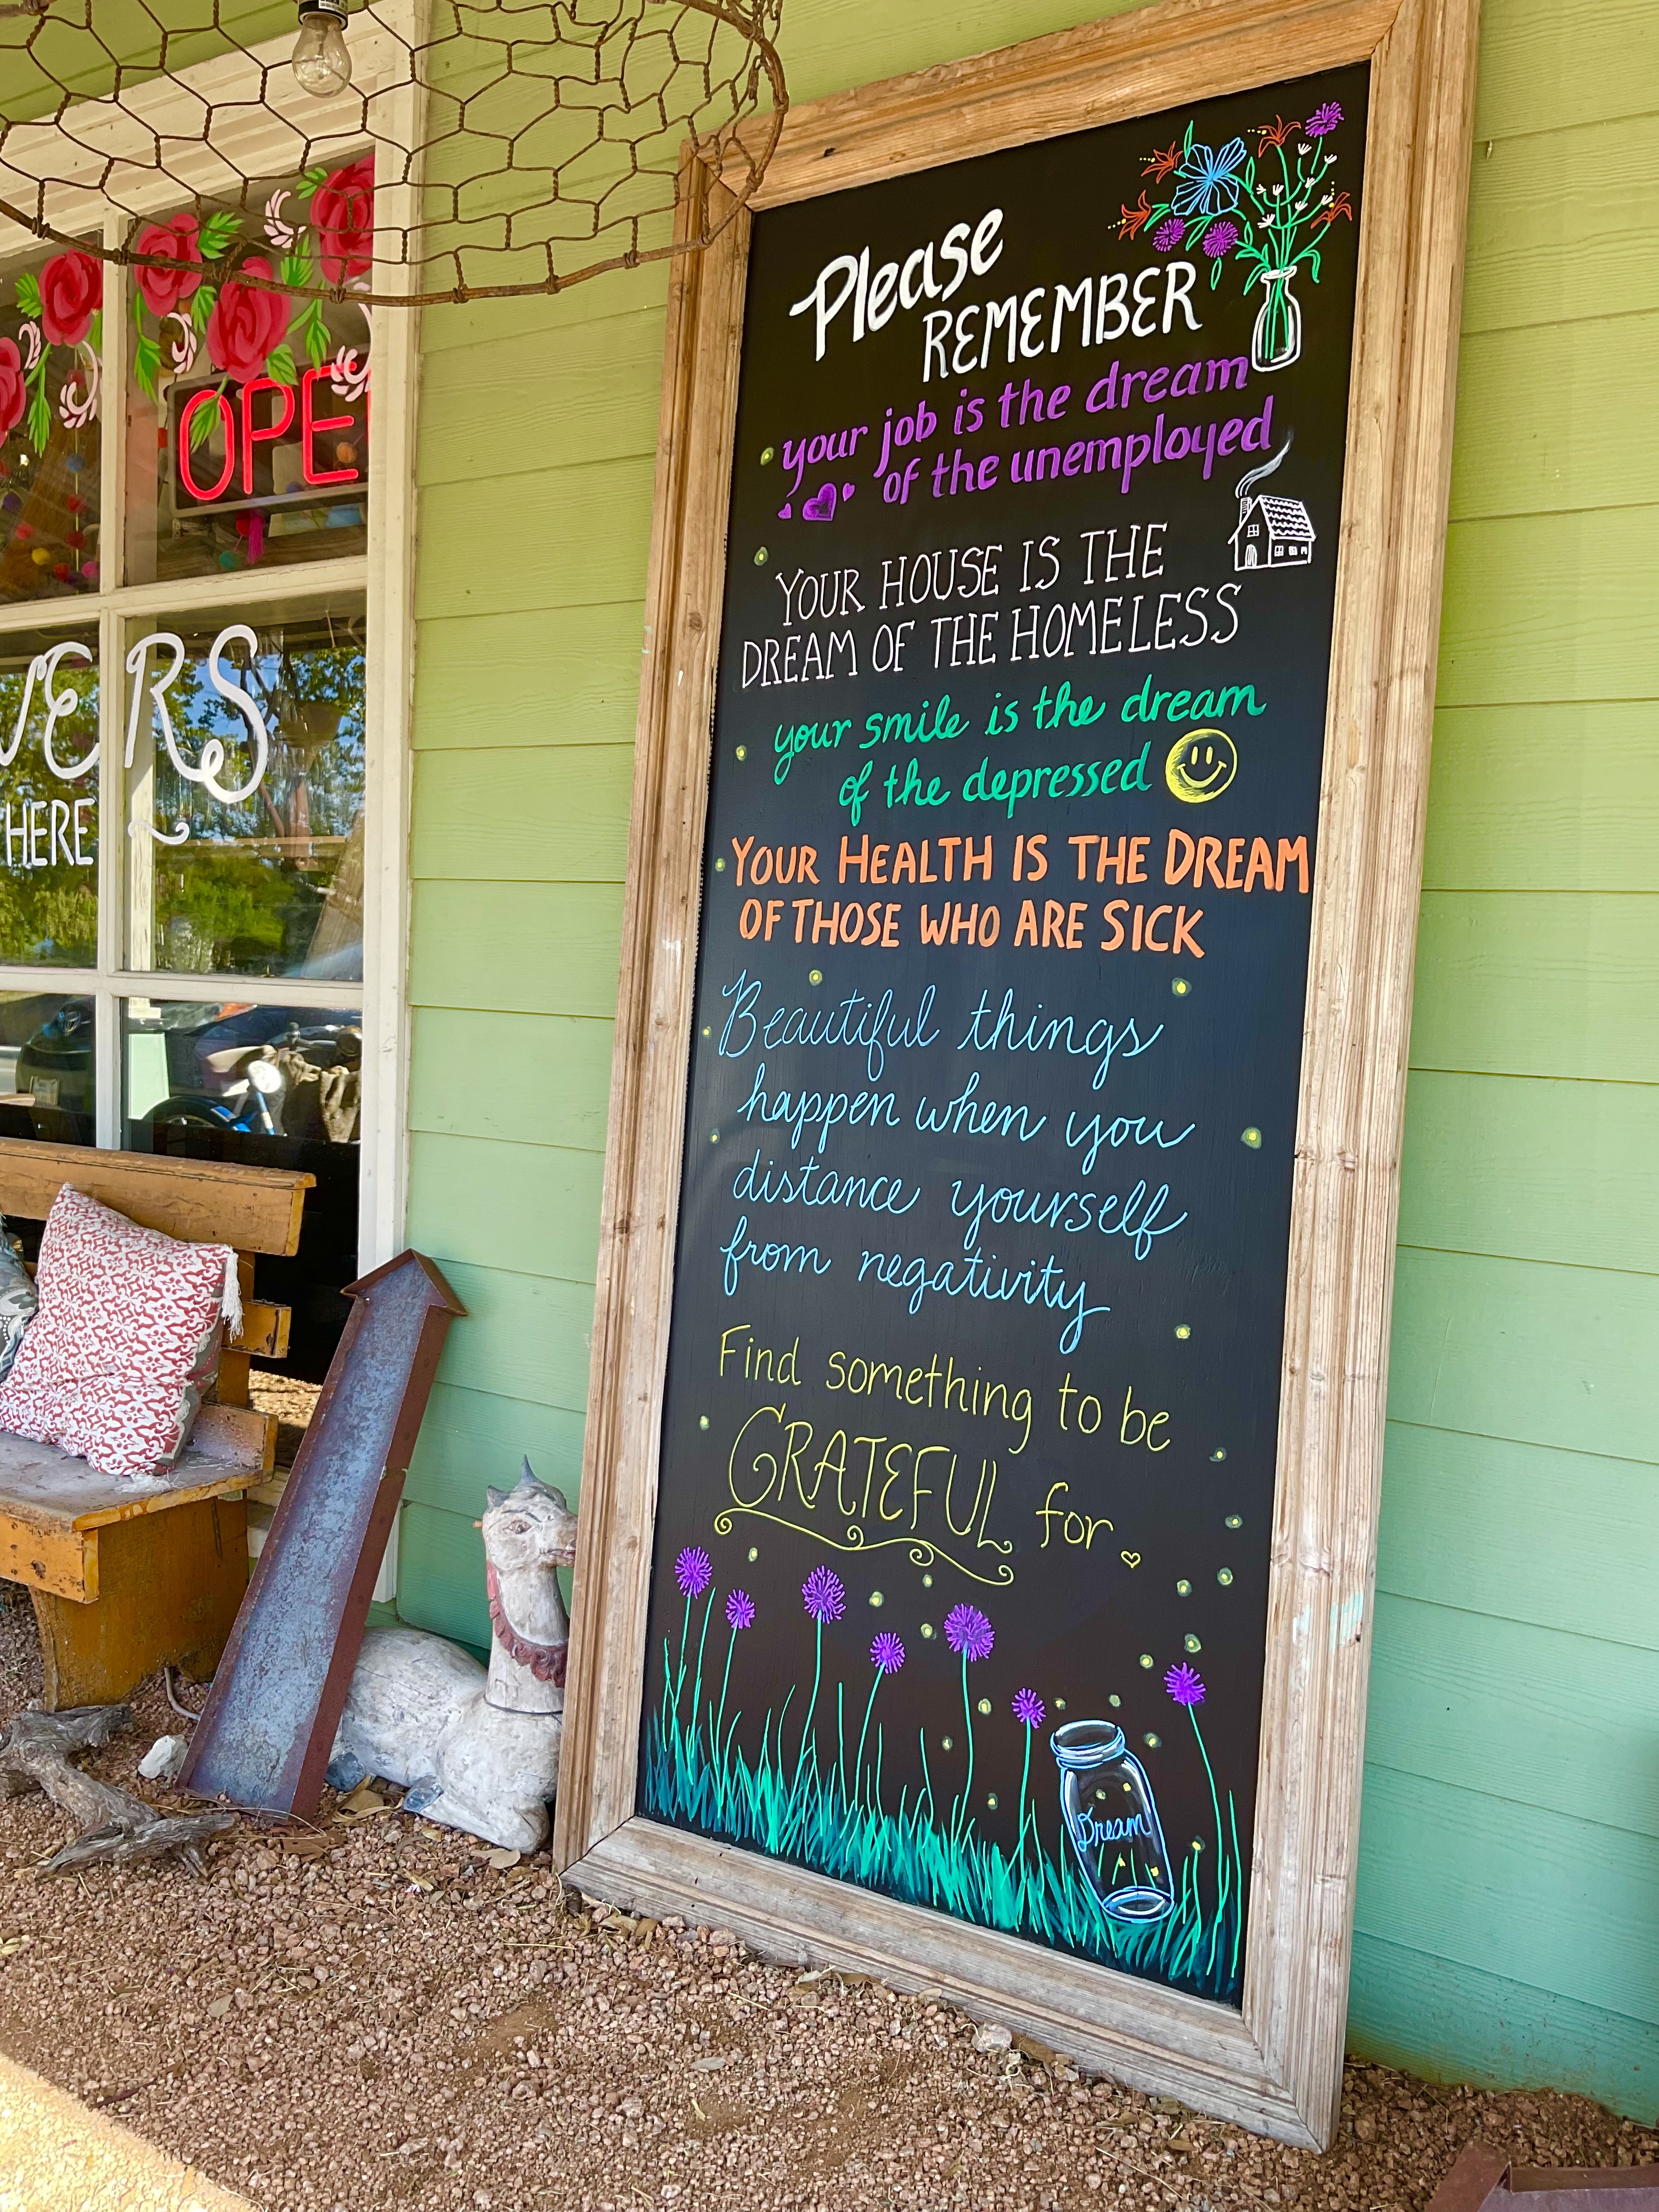 Please
REMEMBER
your job is the dream
of the unemployed
YOUR HOUSE IS THE
DREAM OF THE HOMELESS
your smile is the dream
of the depressed
YOUR HEALTH IS THE DREAM
OF THOSE WHO ARE SICK
Beautiful things
happen when you
distance yourself
from negativity
Find something to be
GRATEFUL for
Dream
OPE
VERS
HERE